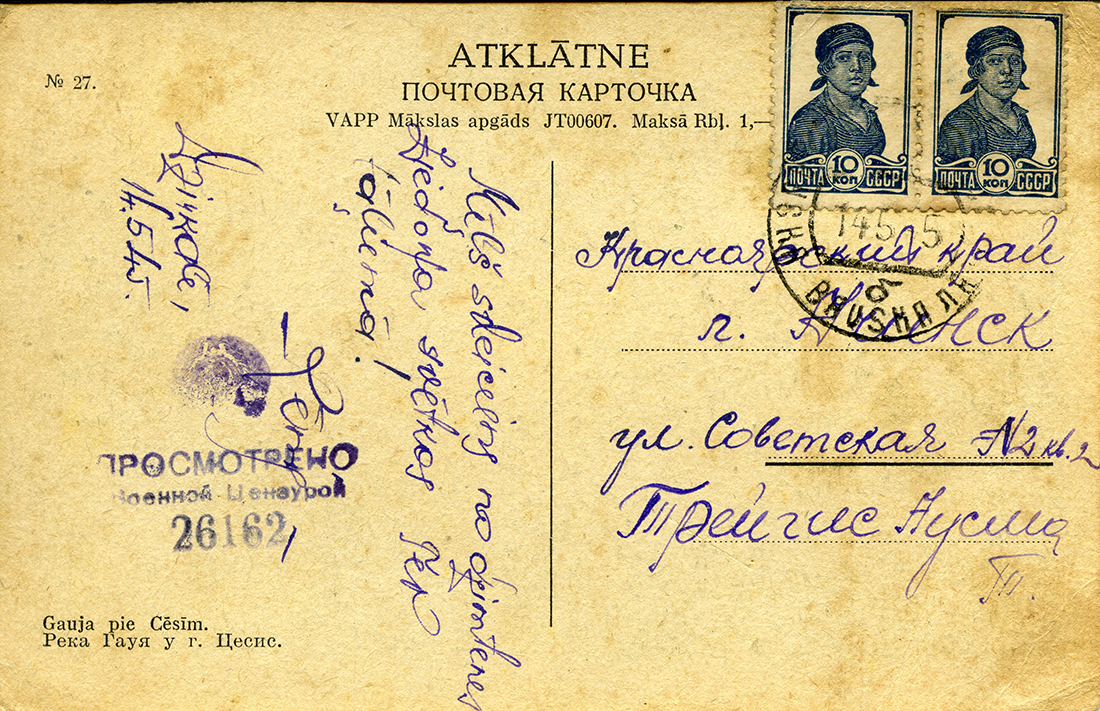 № 27.
ATKLĀTNE
ПОЧТОВАЯ КАРТОЧКА
VAPP Mākslas apgāds JT00607. Maksā Rbļ. 1,—
10 КОП
ПОЧТА СССР
10 КОП
ПОЧТА СССР
14 5 5
14.5.45.
Mīļš sveiciens no dzimtenes
Ziedoņa svētkos
tālienā!
ПРОСМОТРЕНО
Военной Цензурой
26162
Красноярский край
г. КАНСК
ул. Советская №2 кв. 2
Трейгис Аусма
Т.
Gauja pie Cēsīm.
Река Гауя у г. Цесис.